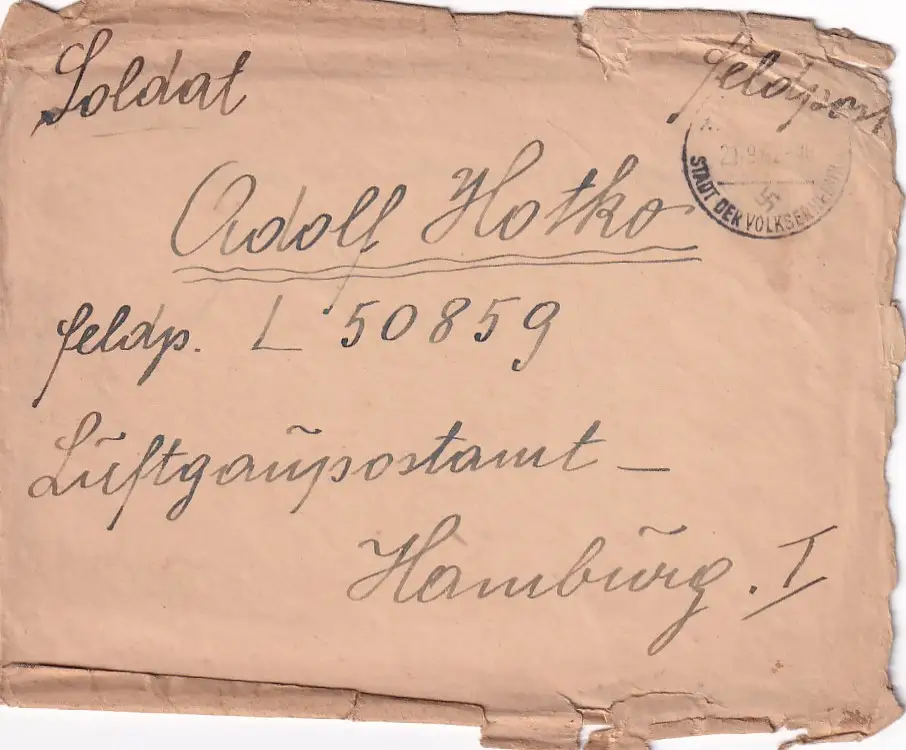 Soldat
Feldpost
STADT DER VOLKSERHEBUNG
Adolf Hotko
Feldp. L 50859
Luftgaupostamt –
Hamburg. I